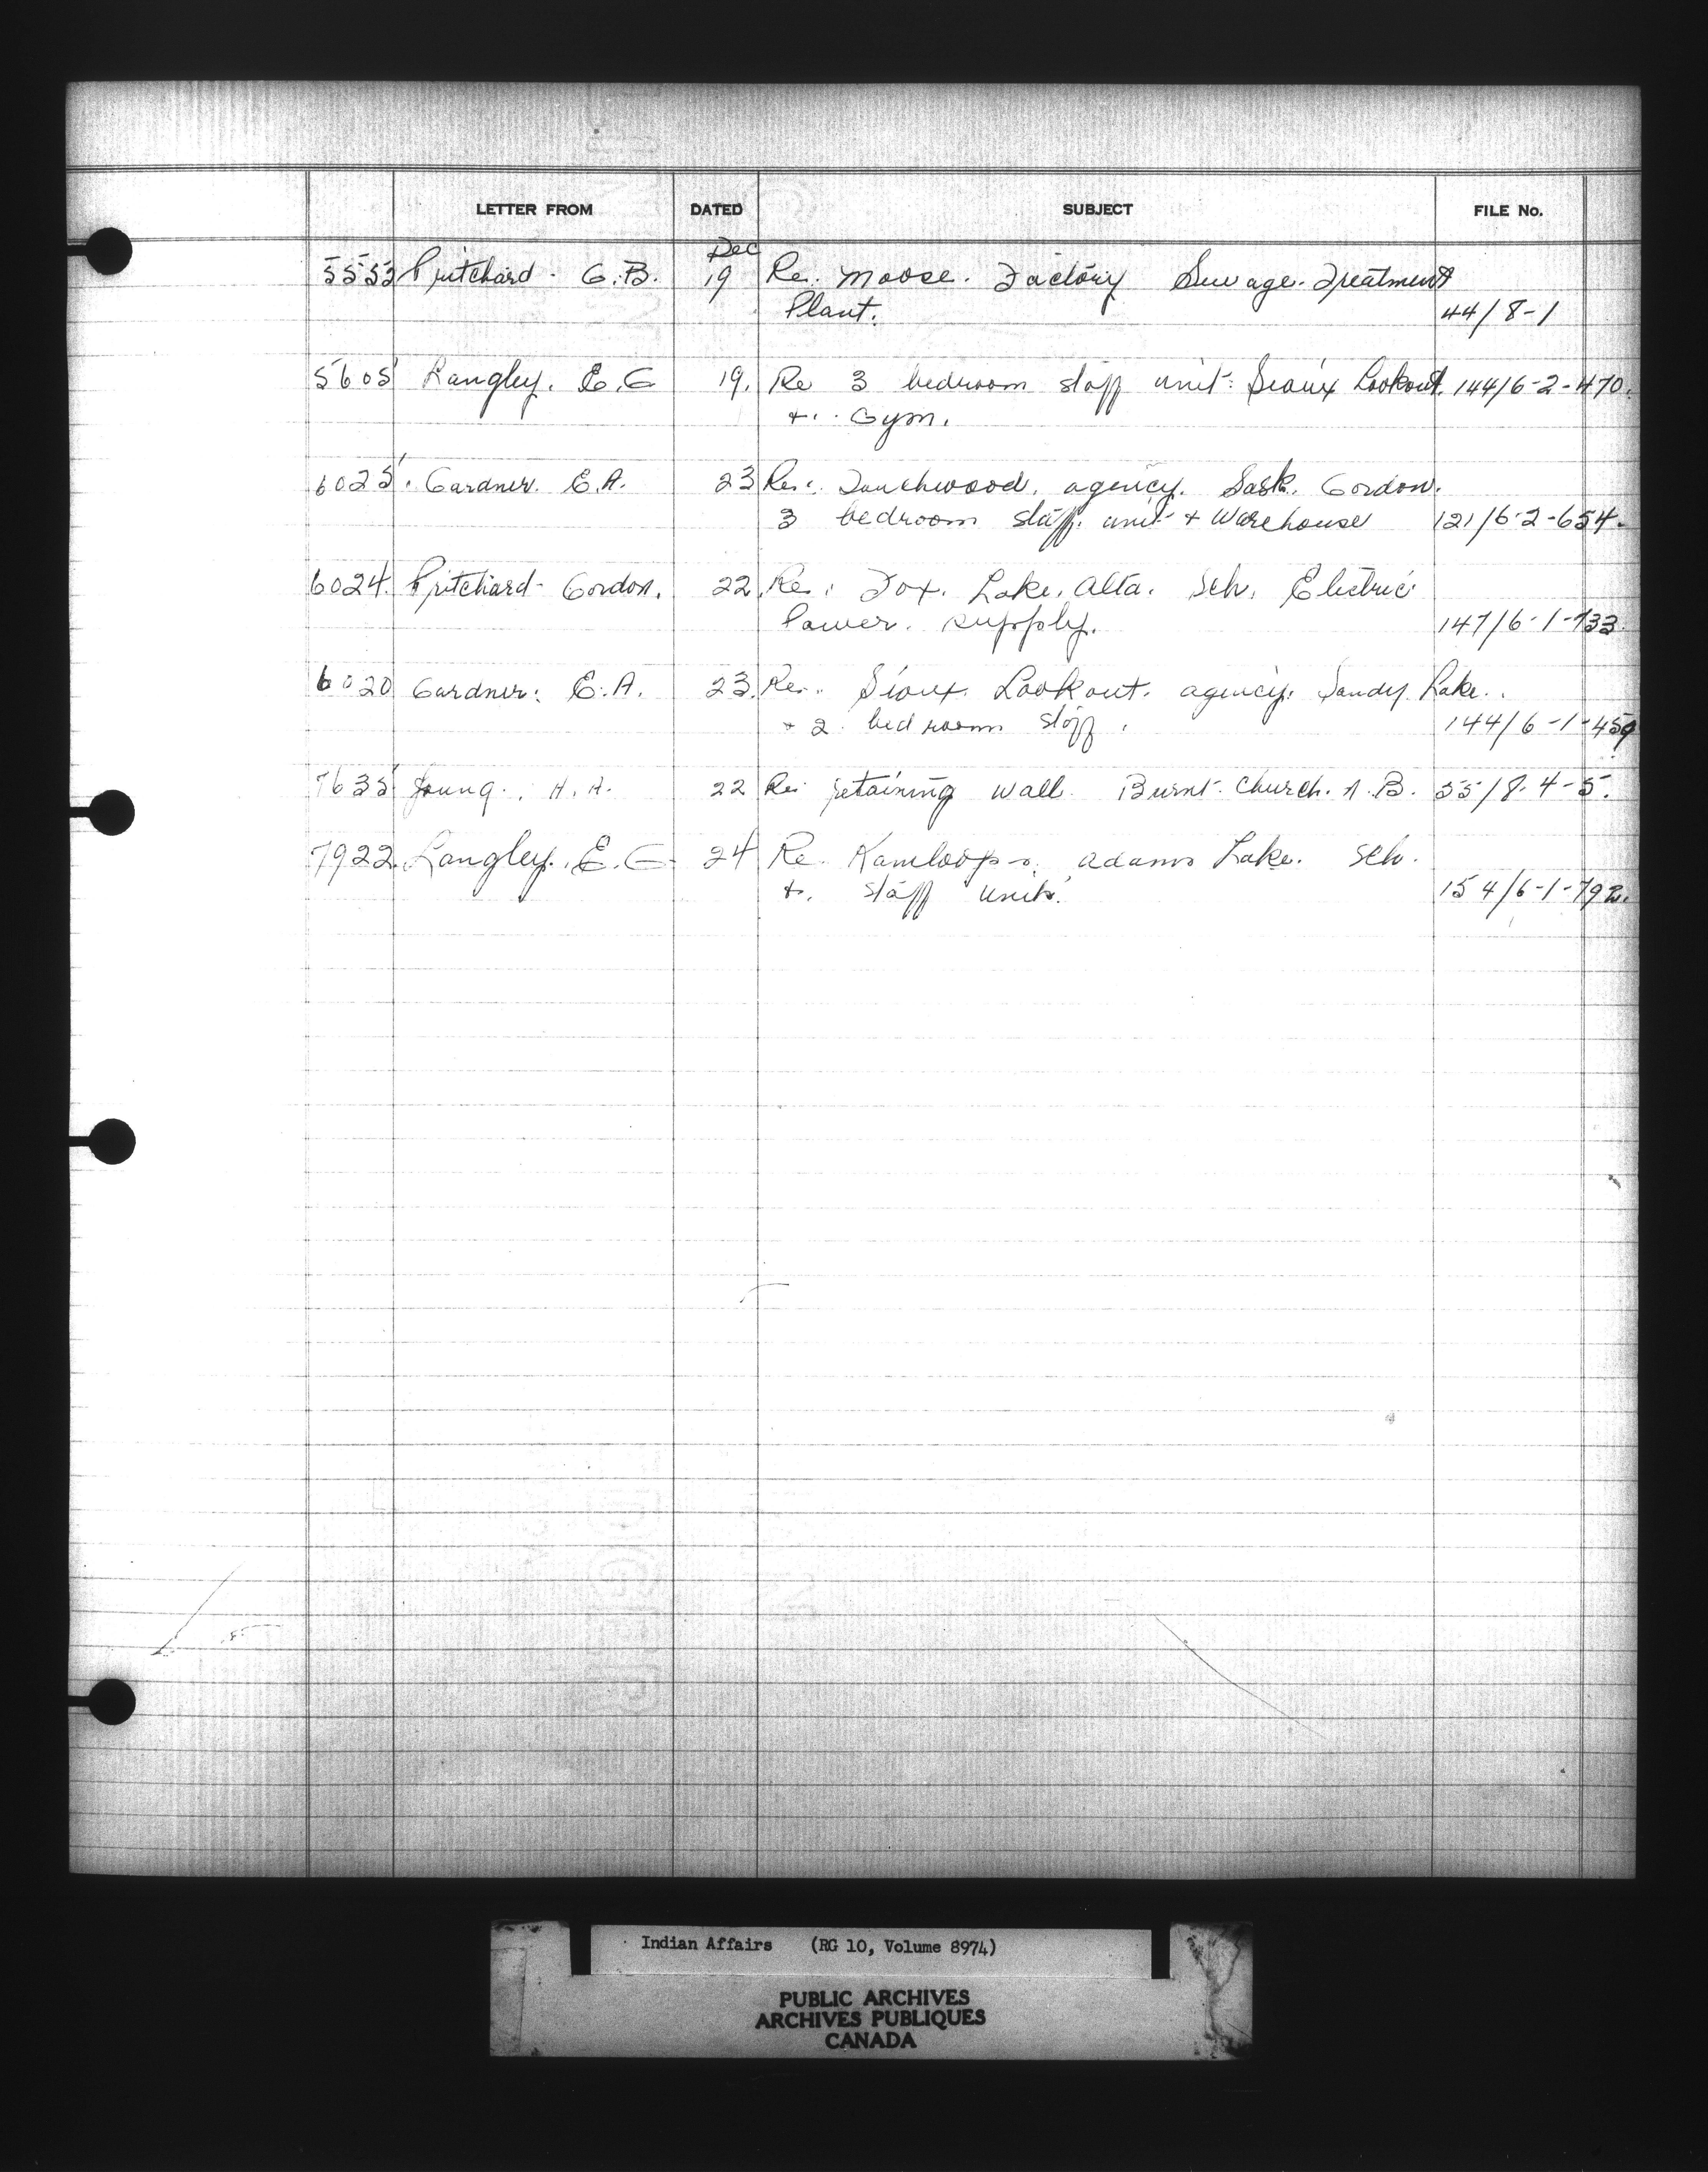 LETTER FROM DATED SUBJECT FILE No.
Dec
5552 Pritchard - G.B. 19 Re. Moose. Factory Sewage. Treatment
Plant. 44/8-1
5605 Langley. E.G 19. Re 3 bedroom staff unit. Sioux Lookout. 144/6-2-470.
+. Gym.
6025. Gardner. E.A. 23 Re. Touchwood. agency. Sask. Gordon.
3 bedroom staff. unit + Warehouse 121/6-2-654.
6024. Pritchard - Gordon. 22. Re. Fox. Lake. Alta. Sch. Electric
Power. supply. 147/6-1-733.
6020 Gardner. E.A. 23. Re. Sioux. Lookout. agency. Sandy. Lake.
+ 2 bedroom staff. 144/6-1-459
7635 Young., H.H. 22 Re retaining wall. Burnt. Church. N.B. 55/8-4-5.
7922. Langley. E.G 24 Re. Kamloops. adams Lake. Sch.
+. staff units. 154/6-1-792.
Indian Affairs (RG 10, Volume 8974)
PUBLIC ARCHIVES
ARCHIVES PUBLIQUES
CANADA